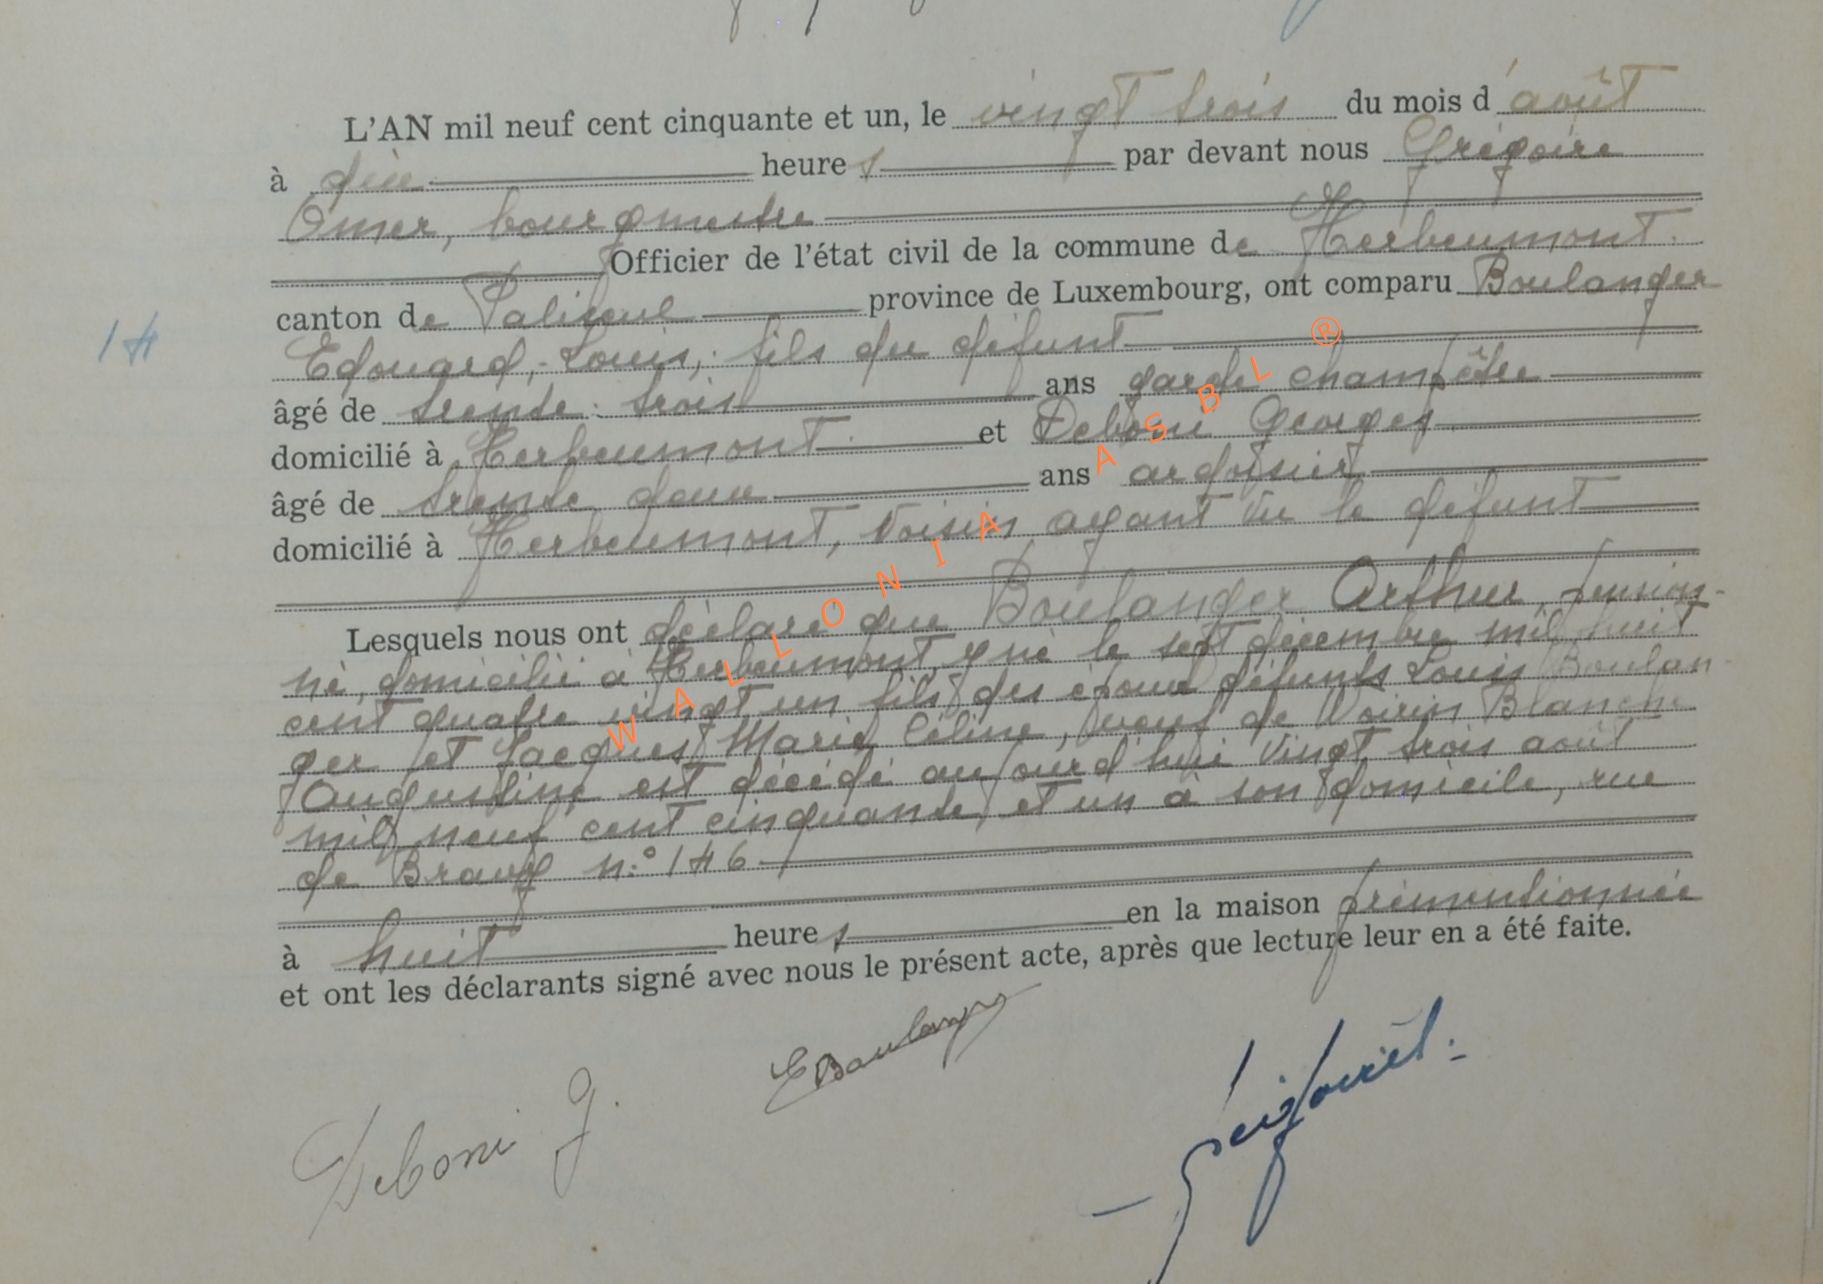 L'AN mil neuf cent cinquante et un, le vingt trois du mois d'août
à dix heures par devant nous Grégoire
Omer, bourgmestre
Officier de l'état civil de la commune de Herbeumont.
canton de Paliseul province de Luxembourg, ont comparu Boulanger
Edouard, Louis, fils du défunt
14
âgé de trente-trois ans garde champêtre
domicilié à Herbeumont. et Deboni Georges
âgé de trente deux ans ardoisier
domicilié à Herbeumont, voisin ayant vu le défunt
Lesquels nous ont déclaré que Boulanger Arthur, pension-
né, domicilié à Herbeumont, y né le sept décembre mil huit
cent quatre vingt un fils des époux défunts Louis Boulan-
ger et Jacques Marie Céline, veuf de Voirin Blanche
Augustine est décédé aujourd'hui vingt trois août
mil neuf cent cinquante et un à son domicile, rue
de n:° 146.
à huit heures en la maison prémentionnée
et ont les déclarants signé avec nous le présent acte, après que lecture leur en a été faite.
EBoulanger
Deboni G.
WALLONIA ASBL ®